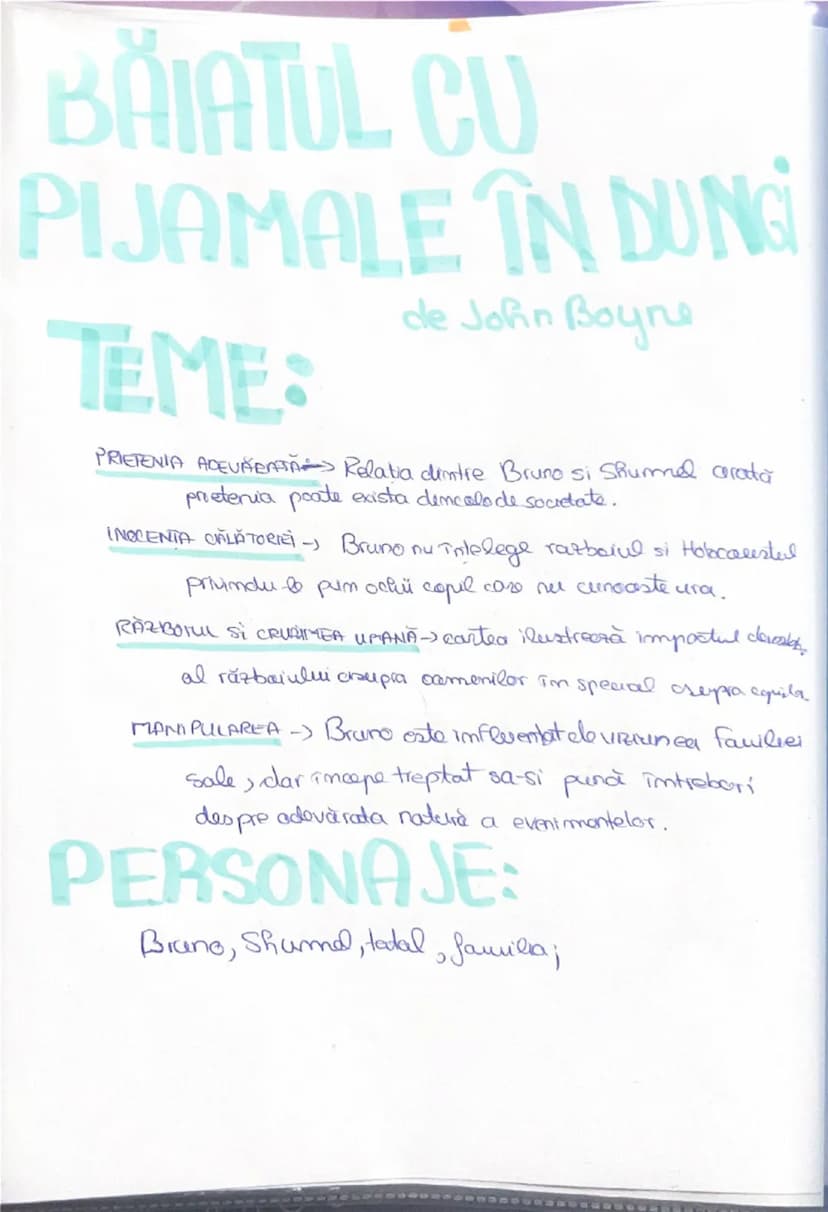 BĂIATUL CU
PIJAMALE ÎN DUNGI
de John Boyne
TEME:
PRIETENIA ADEVĂRATĂ -> Relația dintre Bruno si Shumel arată
prietenia poate exista dincolo de societate.
INOCENȚA -> Bruno nu întelege razboiul si Holocaustul
privindu-l prin ochii copil care nu cunoaste ura.
RĂZBOIUL SI CRUZIMEA UMANĂ -> cartea ilustrează impactul
al războiului asupra oamenilor în special asupra
MANIPULAREA -> Bruno este influentat de viziunea familiei
sale, dar începe treptat sa-si pună întrebări
despre adevărata natură a evenimentelor.
PERSONAJE:
Bruno, Shumel, tatal, familia;